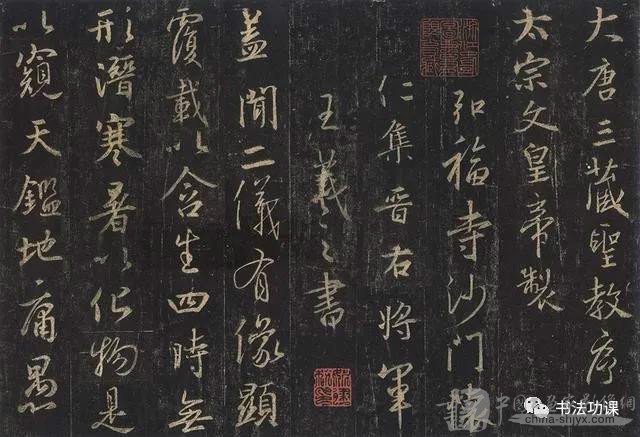 大唐三藏聖教序
太宗文皇帝製
弘福寺沙門懷
仁集晉右將軍
王羲之書
蓋聞二儀有像顯
覆載以含生四時無
形潛寒暑以化物是
以窺天鑑地庸愚
书法功课
china-shjyx.com